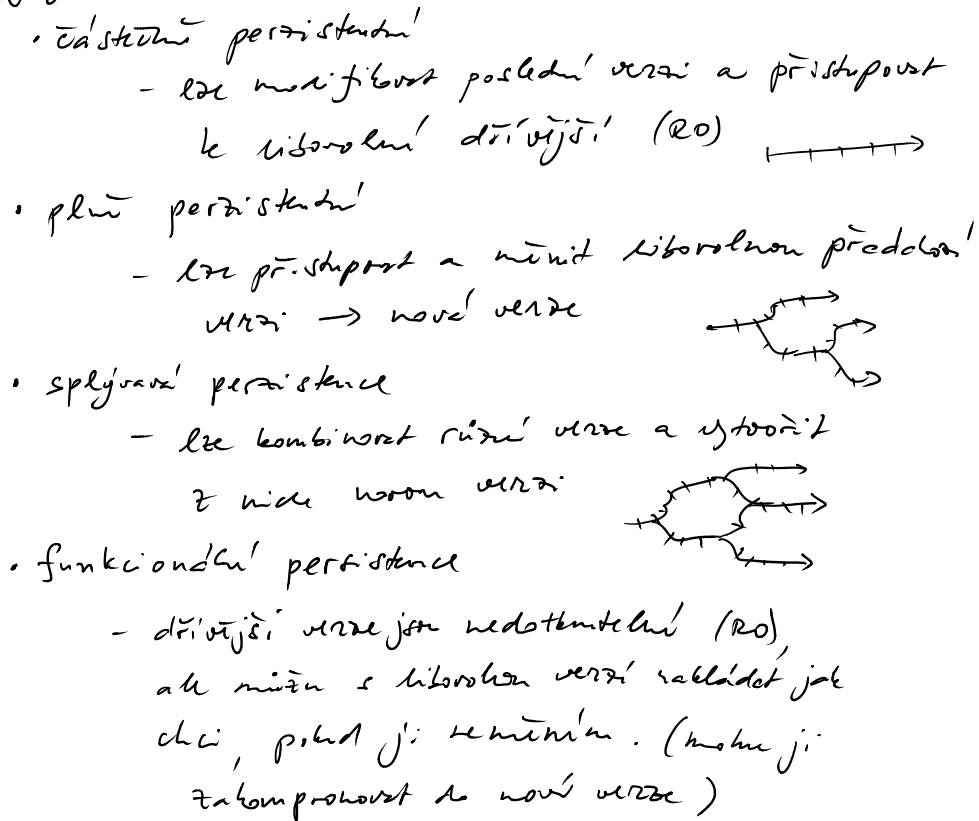 • částečně perzistentní
- lze modifikovat poslední verzi a přistupovat
k libovolné dřívější (RO)
• plně perzistentní
- lze přistupovat a měnit libovolnou předchozí
verzi → nová verze
• splývavá perzistence
- lze kombinovat různé verze a vytvořit
z nich novou verzi
• funkcionální perzistence
- dřívější verze jsou nedotknutelné (RO),
ale můžu s libovolnou verzí nakládat jak
chci, pokud ji neměním. (mohu ji
zakomponovat do nové verze)